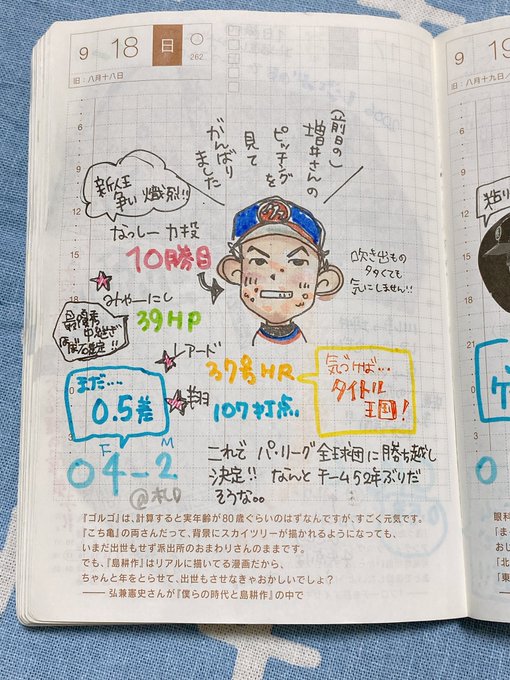 9 18 日 ○
262
旧:八月十八日
(前日の)
増井さんの
ピッチングを
見て
がんばり
ました
新人王
争い熾烈!!
なっしー力投
10勝目
吹き出もの
多くても
気にしません!!
みやーにし
39HP
最優秀
中継ぎ
ほぼ確定!!
レアード
37号HR
翔
107打点
気づけば…
タイトル
王国!
まだ…
0.5差
F M
○4-2
@札D
これで パ・リーグ全球団に勝ち越し
決定!! なんとチーム52年ぶりだ
そうな。。
6
9
12
15
18
『ゴルゴ』は、計算すると実年齢が80歳ぐらいのはずなんですが、すごく元気です。
『こち亀』の両さんだって、背景にスカイツリーが描かれるようになっても、
いまだ出世もせず派出所のおまわりさんのままです。
でも、『島耕作』はリアルに描いてる漫画だから、
ちゃんと年をとらせて、出世もさせなきゃおかしいでしょ?
—— 弘兼憲史さんが『僕らの時代と島耕作』の中で
9 19
旧:八月十九日